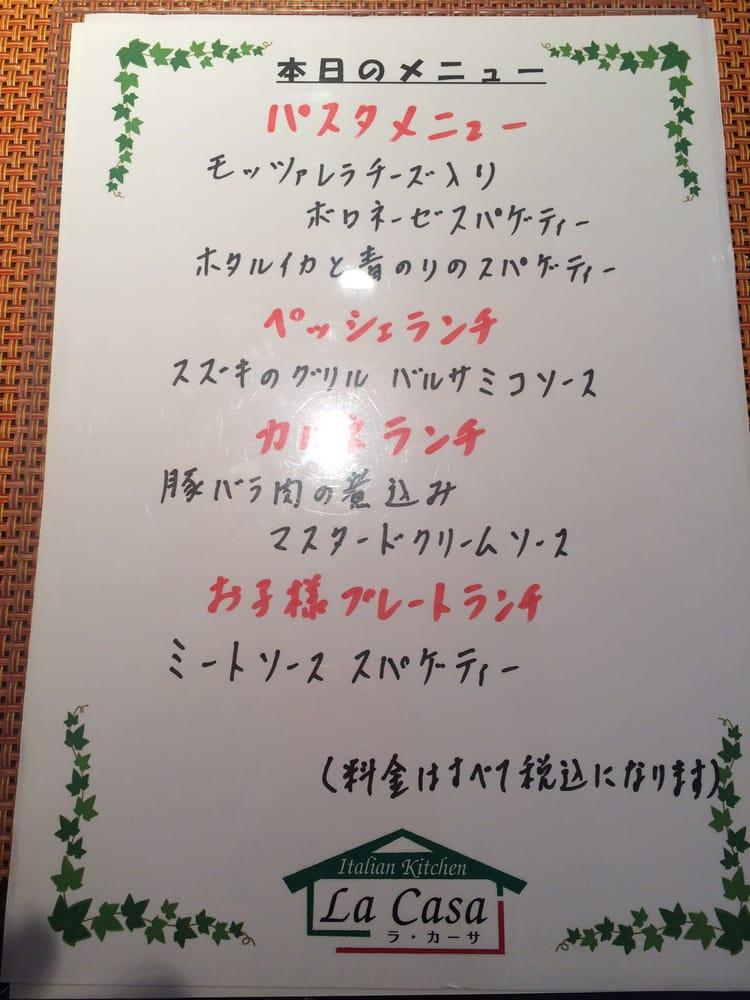 本日のメニュー
パスタメニュー
モッツァレラチーズ入り
ボロネーゼスパゲティー
ホタルイカと青のりのスパゲティー
ペッシェランチ
スズキのグリル バルサミコソース
カルネランチ
豚バラ肉の煮込み
マスタードクリームソース
お子様プレートランチ
ミートソース スパゲティー
(料金はすべて税込になります)
Italian Kitchen
La Casa
ラ・カーサ